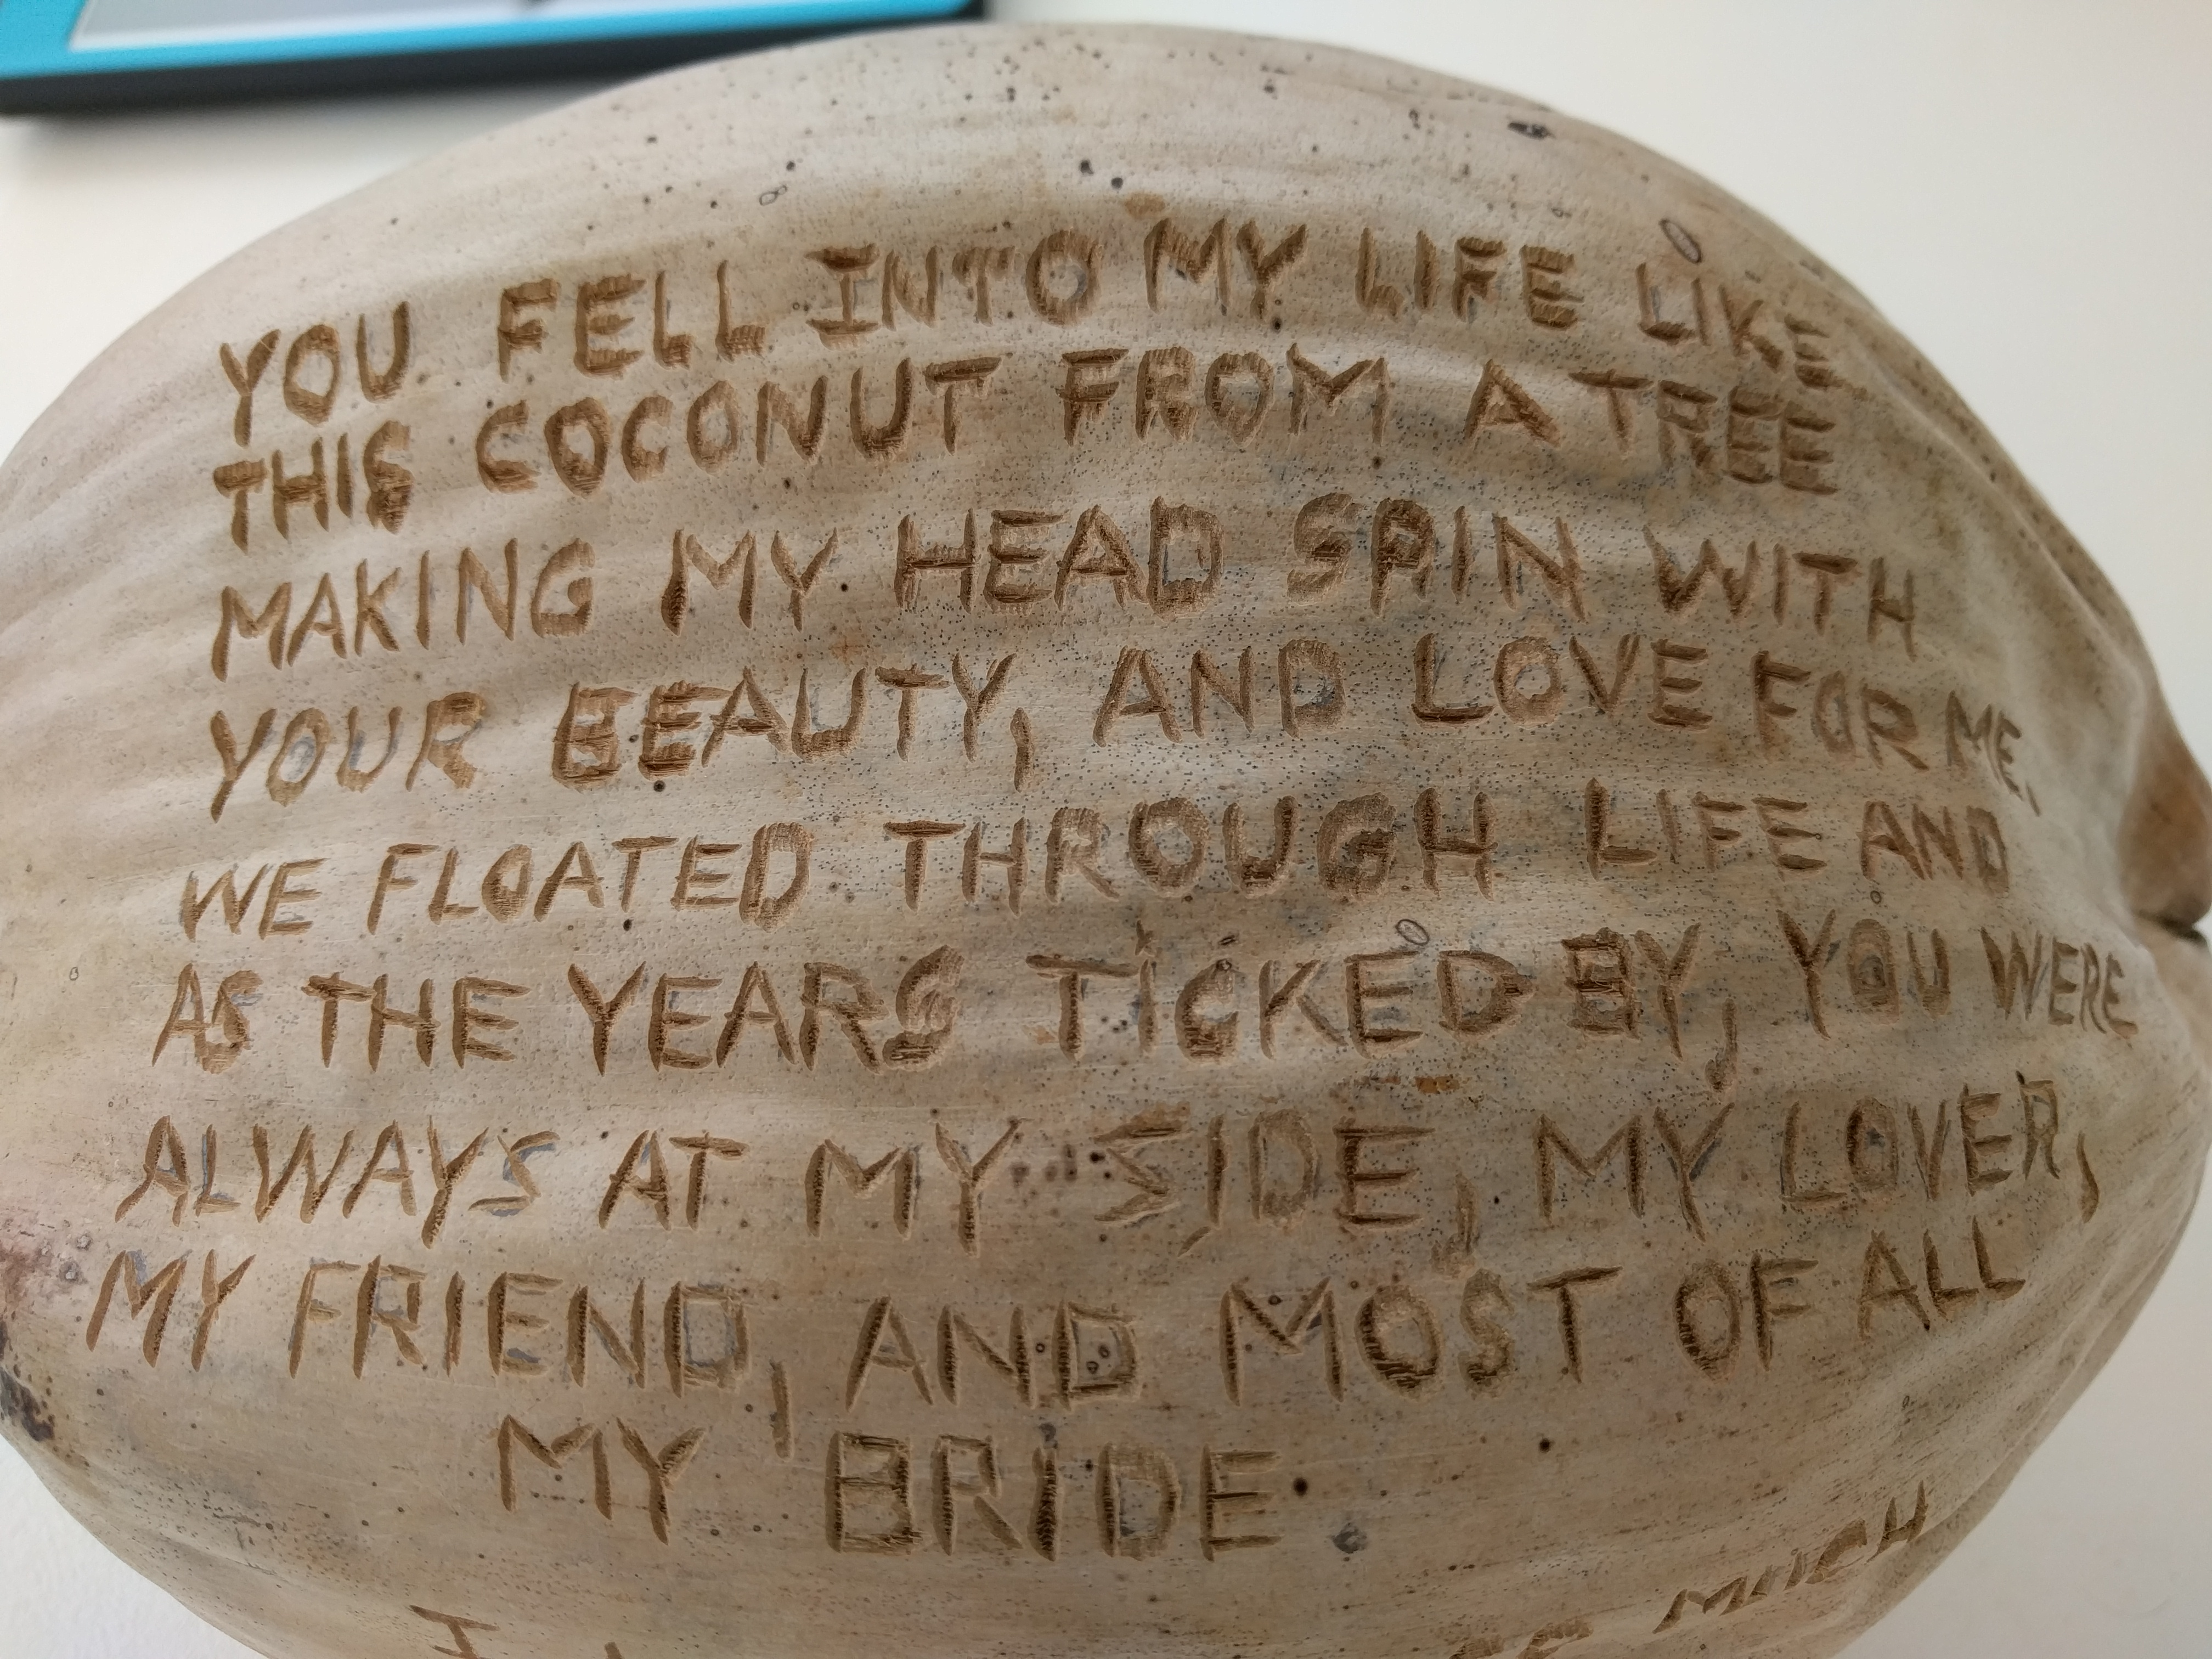 YOU FELL INTO MY LIFE LIKE
THIS COCONUT FROM A TREE
MAKING MY HEAD SPIN WITH
YOUR BEAUTY, AND LOVE FOR ME.
WE FLOATED THROUGH LIFE AND
AS THE YEARS TICKED BY, YOU WERE
ALWAYS AT MY SIDE, MY LOVER,
MY FRIEND, AND MOST OF ALL
MY BRIDE.
I MUCH